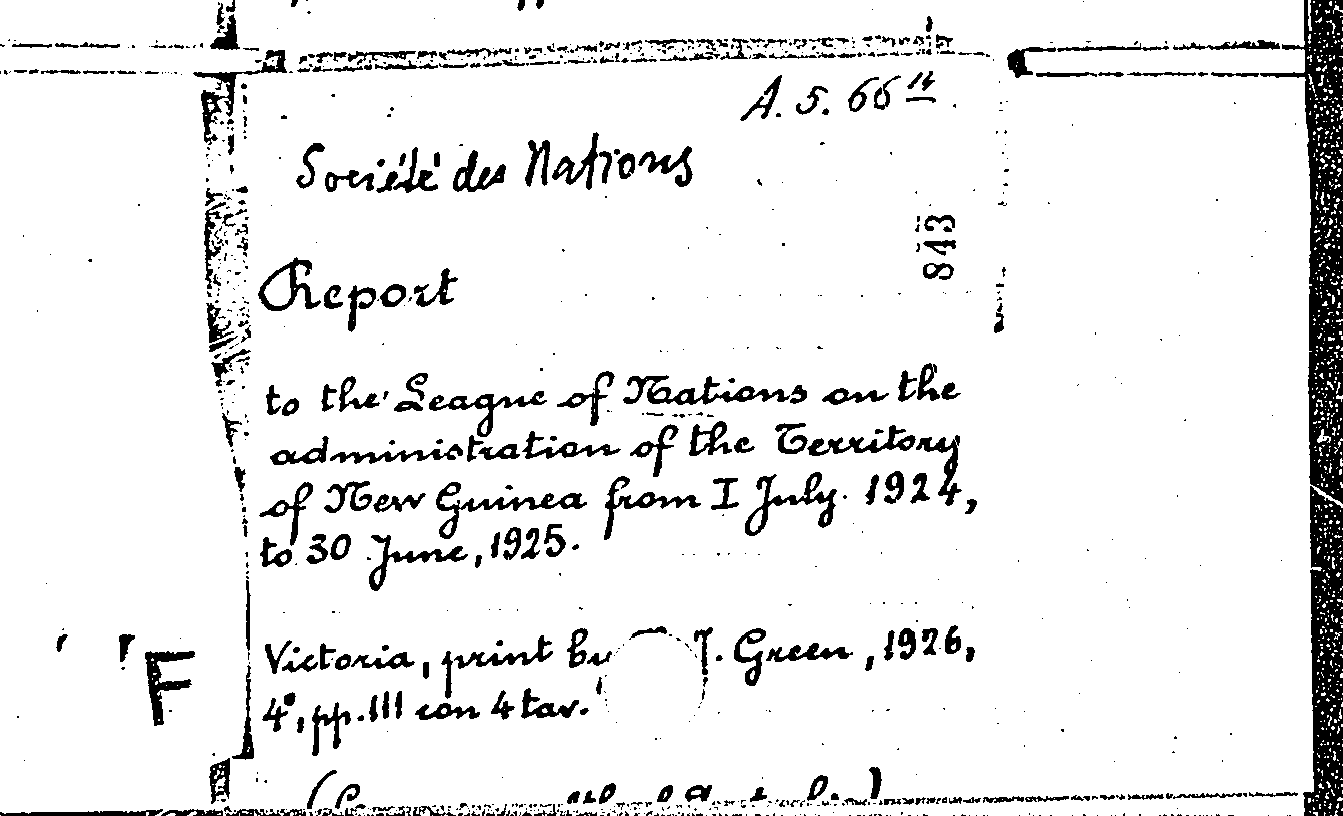 A. 5. 66
Société des Nations
843
Report
to the League of Nations on the
administration of the Territory
of New Guinea from I July. 1924,
to 30 June, 1925.
Victoria, print by J. Green, 1926,
4°, pp. 111 con 4 tav.
F